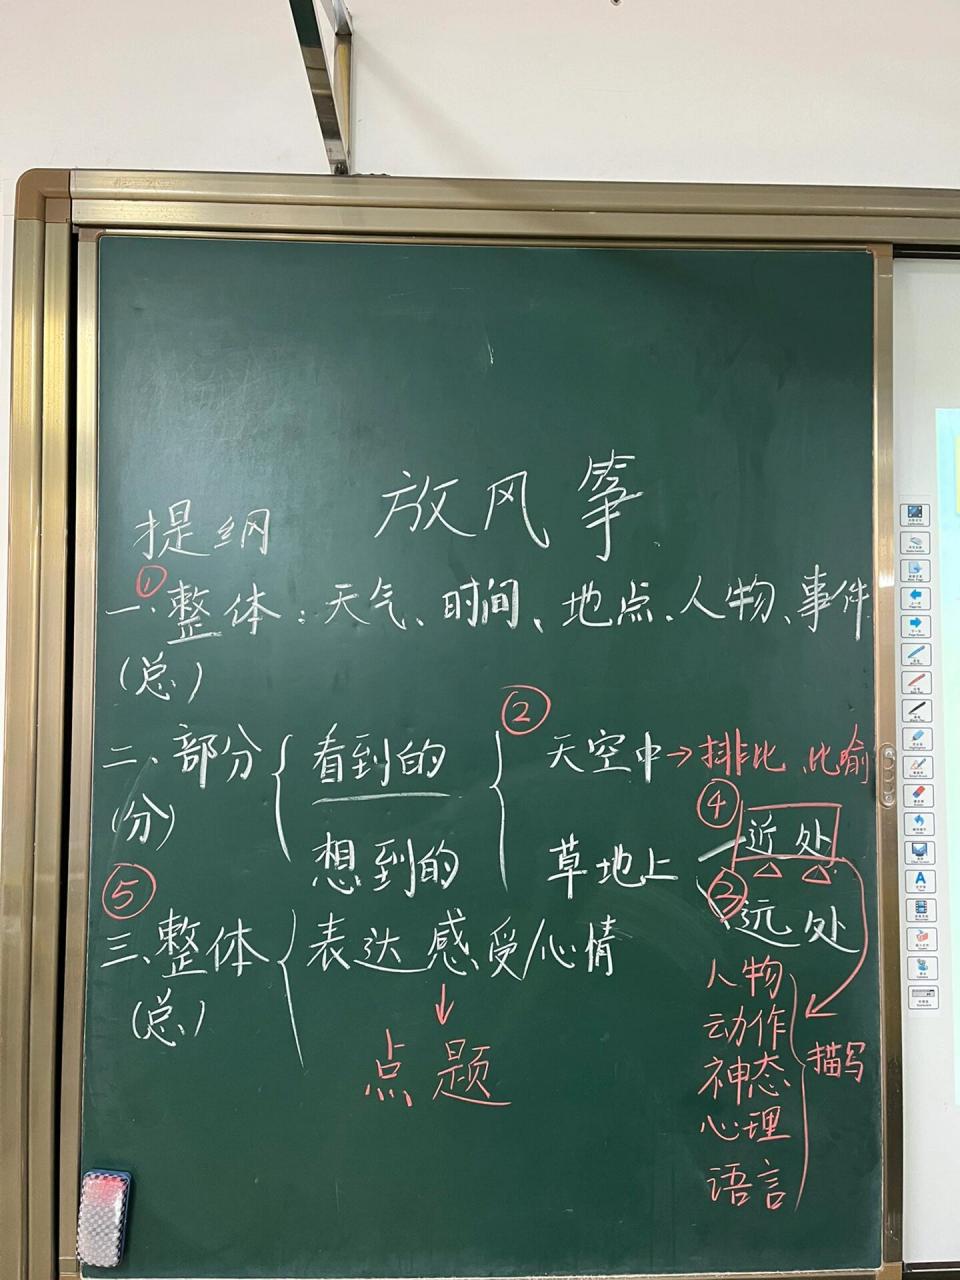 放风筝
提纲
①
一、整体：天气、时间、地点、人物、事件
(总)
②
二、部分 看到的 天空中→排比、比喻
(分) 想到的 草地上
④ 近处
③ 远处
⑤
三、整体 表达感受/心情
(总)
↓
点题
人物
动作
神态
心理
语言
描写